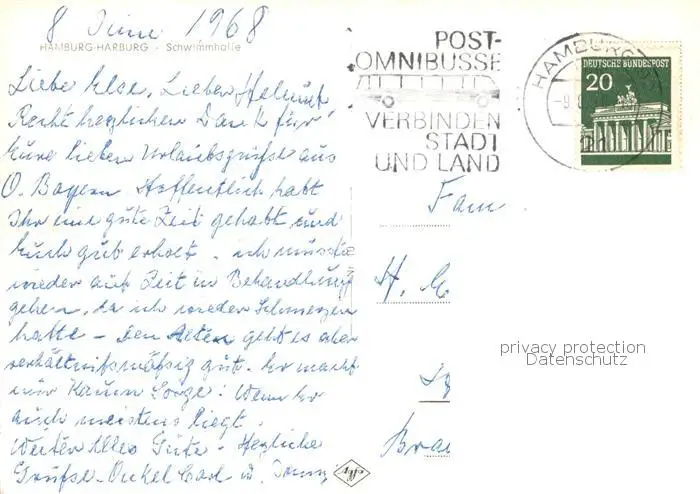 8 Juni 1968
HAMBURG-HARBURG - Schwimmhalle
Liebe Else, Lieber Helmut
Recht herzlichen Dank für
Eure lieben Urlaubsgrüße aus
O. Bayern Hoffentlich habt
Ihr eine gute Zeit gehabt und
Euch gut erholt. ich musste
wieder auf Zeit in Behandlung
gehen, da ich wieder Schmerzen
hatte - Den Alten geht es aber
verhältnismäßig gut. Er macht
mir kaum Sorge! Wenn Er
auch meistens liegt.
Weiter Alles Gute - Herzliche
Grüße Onkel Carl u.
Agfa
POST-
OMNIBUSSE
VERBINDEN
STADT
UND LAND
HAMBURG
-9.
DEUTSCHE BUNDESPOST
20
Fam
H.
Bra
privacy protection
Datenschutz